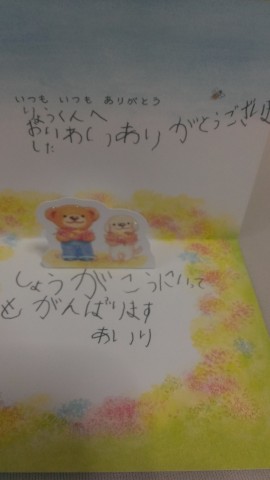 いつも いつも ありがとう
りょうくんへ
おいわいありがとうございま
した
しょうがこうにいって
もがんばります
あいり